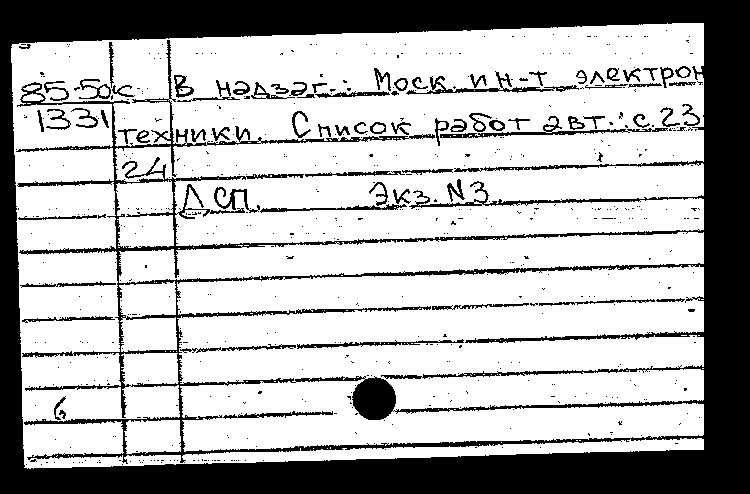 85-50с В надзаг.: Моск. ин-т электрон
1331 техники. Список работ авт.: с. 23
24
ДСП. Экз. N3.
6